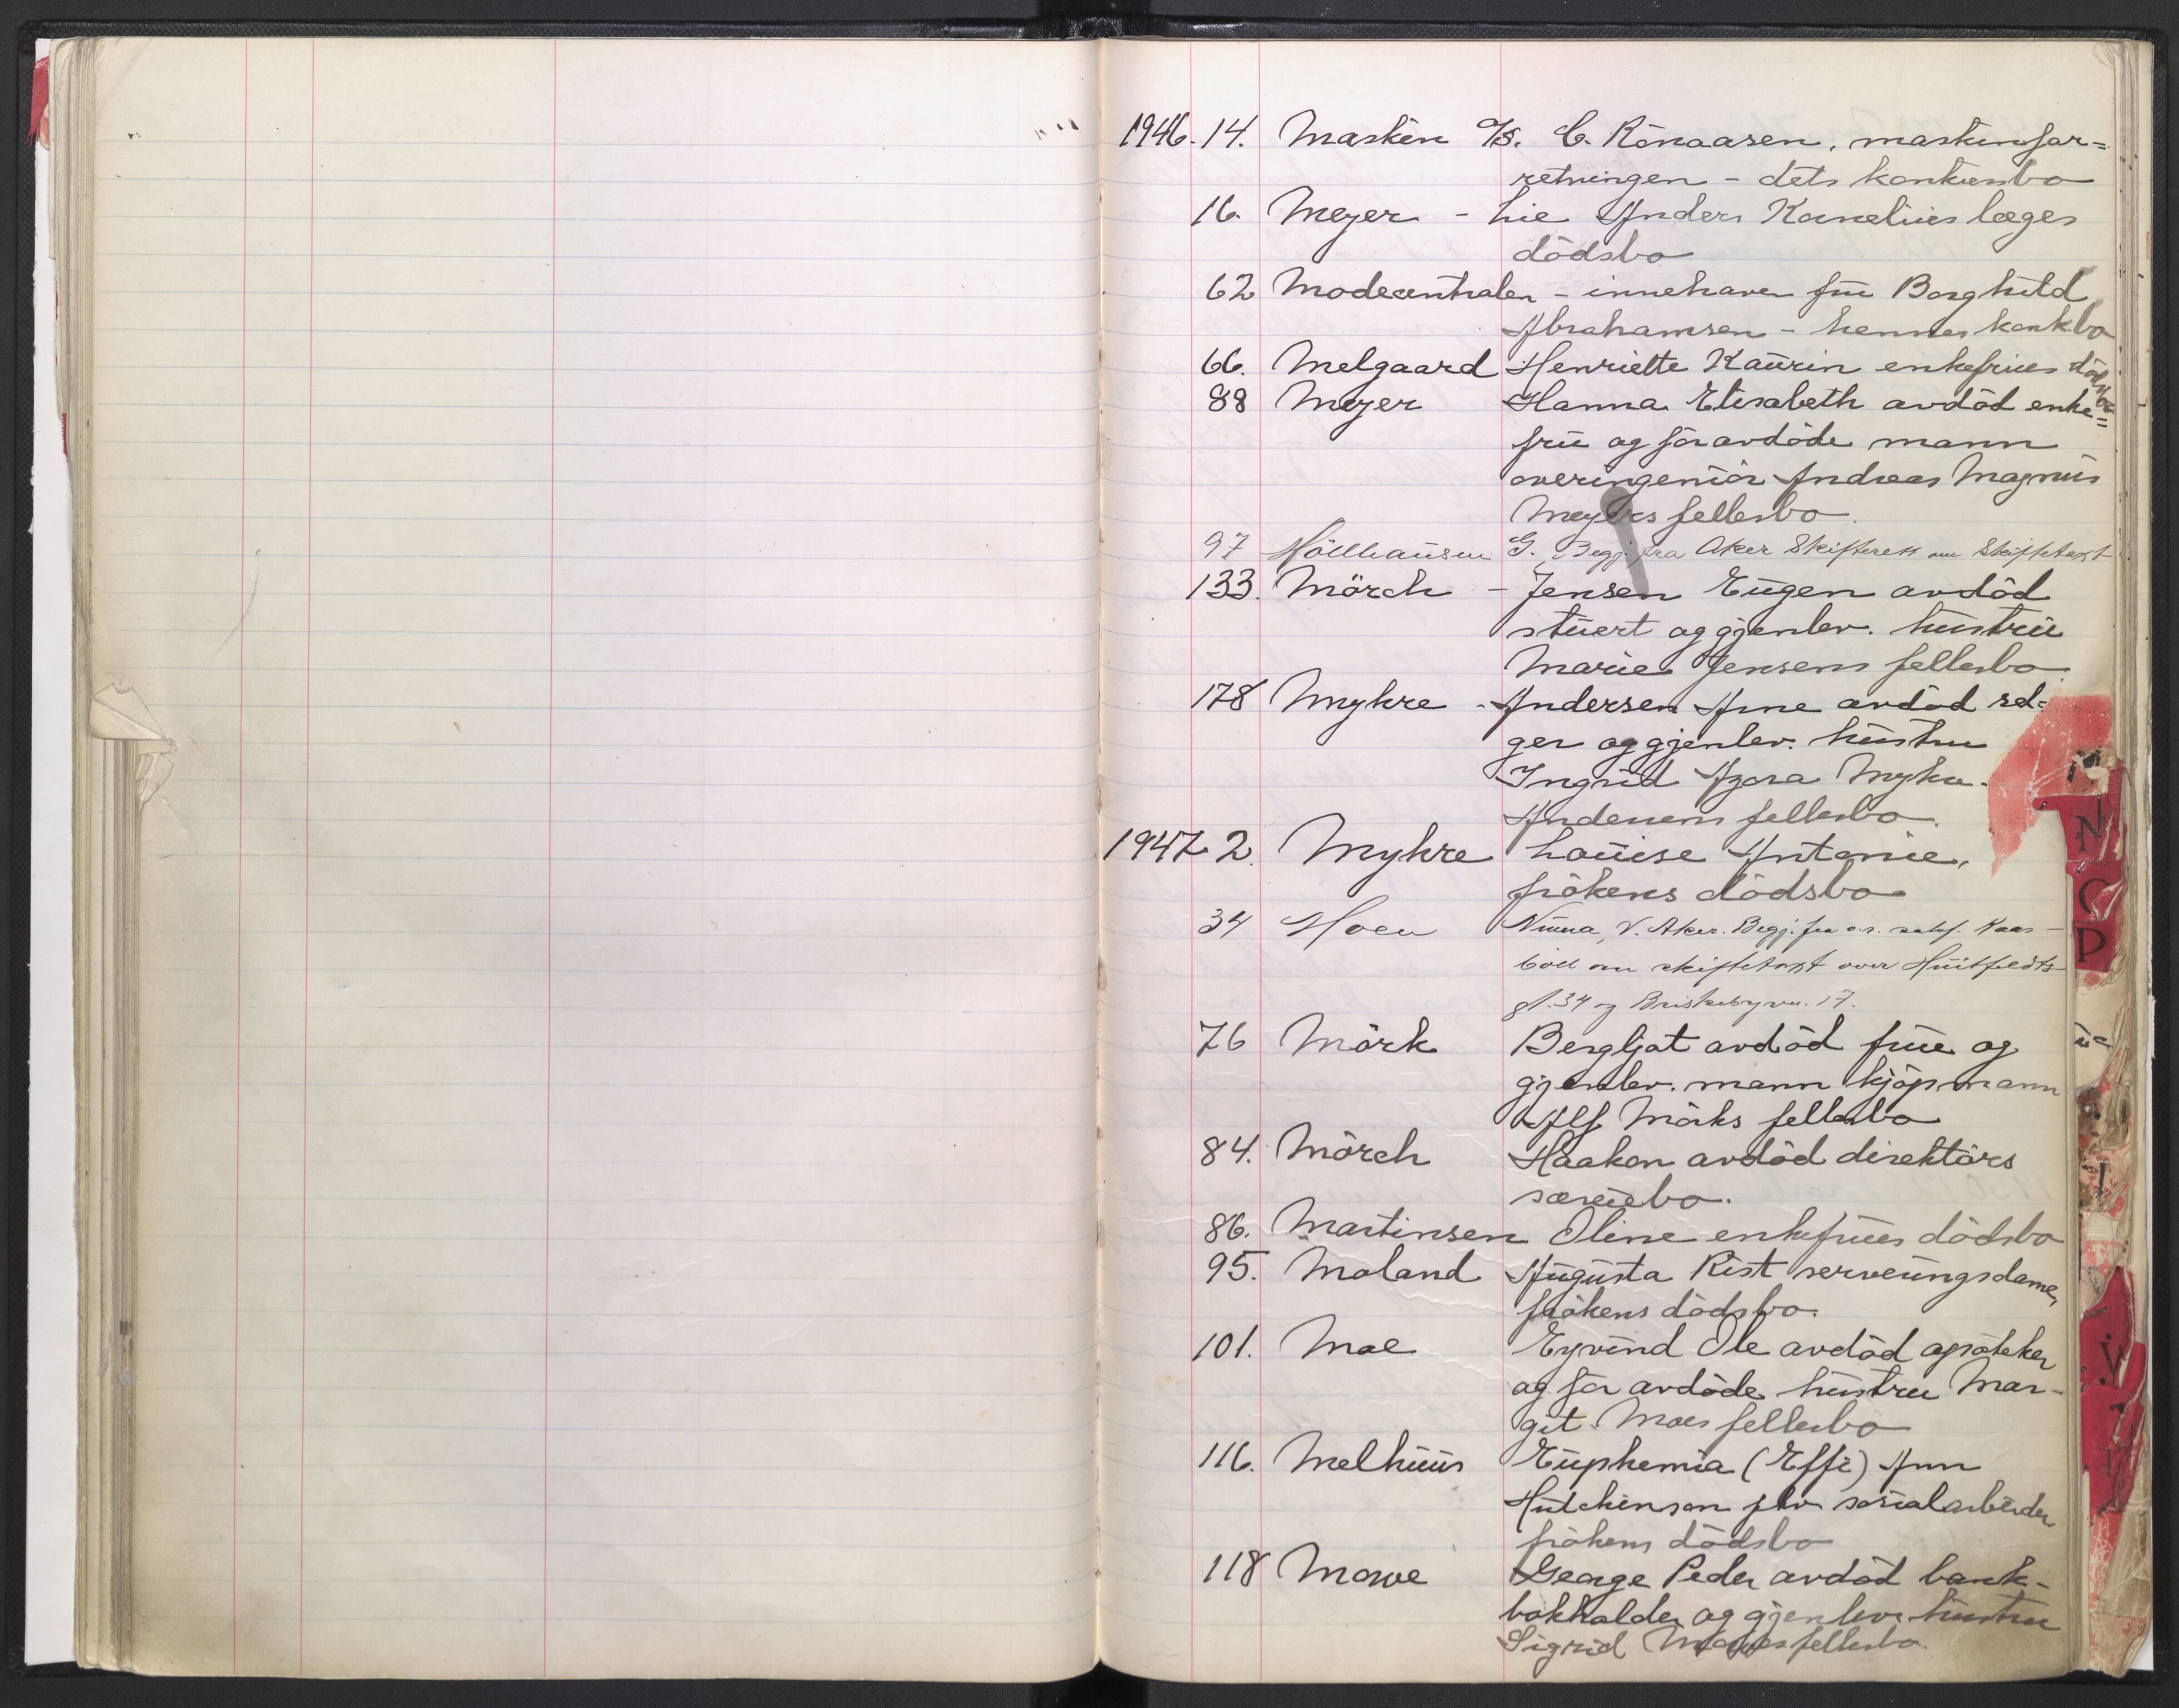 1946. 14. Maskin A/S. C. Rönaasen, maskinfor=
retningen - dets konkursbo
16. Meyer - Lie Anders Kornelius læges
dödsbo
62 Modecentralen - innehaver frü Borghild
Abrahamsen - hennes konk.bo
66. Melgaard Henriette Kaürin enkefrües dödsbo
88 Meyer Hanna Elisabeth avdöd enke=
frü og för avdöde mann
overingeniör Andreas Magnüs
Meyers fellesbo.
97 Möllhaüsen G. Begj. fra Aker Skifterett om Skiftetaxt
133. Mörch - Jensen Eügen avdöd
stüert og gjenlev. hüstrü
Marie Jensens fellesbo.
178 Myhre - Andersen Arne avdöd sel=
ger og gjenlev. hüstru
Ingrid Agora Myhre-
Andersens fellesbo.
1947 2. Myhre Loüise Antonie,
frökens dödsbo
34 Moen Ninna, V. Aker. Begj. fra o.r. sakf. Kaas-
böll om skiftetaxt over Hüitfeldts
gt. 34 og Briskebyvn. 17.
76 Mörk Bergljot avdöd früe og
gjenlev. mann kjöpmann
Alf Mörks fellesbo
84. Mörch Haakon avdöd direktörs
særeiebo.
86. Martinsen Oline enkefrües dödsbo
95. Moland Aügüsta Rist serveüngsdame,
frökens dödsbo.
101. Moe Eyvind Ole avdöd apoteker
og för avdöde hüstru Mar-
git Moes fellesbo
116. Melhüüs Eüphemia (Effi) Ann
Hütchinson sosialarbeider
frökens dödsbo
118 Mowe George Peder avdöd bank-
bokholder og gjenlev. hüstru
Sigrid Mowes fellesbo.
N
P